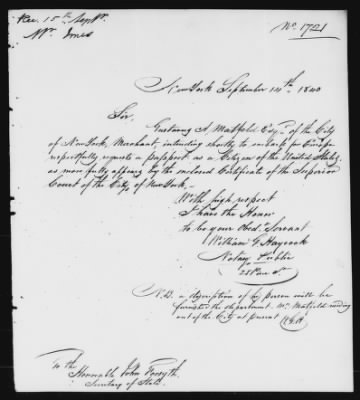 Rec. 15th Sept.
Mr. Jones
No. 1721
New York September 14th 1840
Sir.
Gustavus A. Matfeld Esqr. of the City
of New York, Merchant, intending shortly to embark for Europe
respectfully requests a passport as a Citizen of the United States,
as more fully appears by the enclosed Certificate of the Superior
Court of the City of New York,
With high respect
I have the Honor
to be your Obed. Servant
William G. Haycock
Notary Public
N.B. a description of his person will be
furnished the department. Mr. Matfeld residing
out of the City at present W.G.H.
To the
Honorable John Forsyth,
Secretary of State.